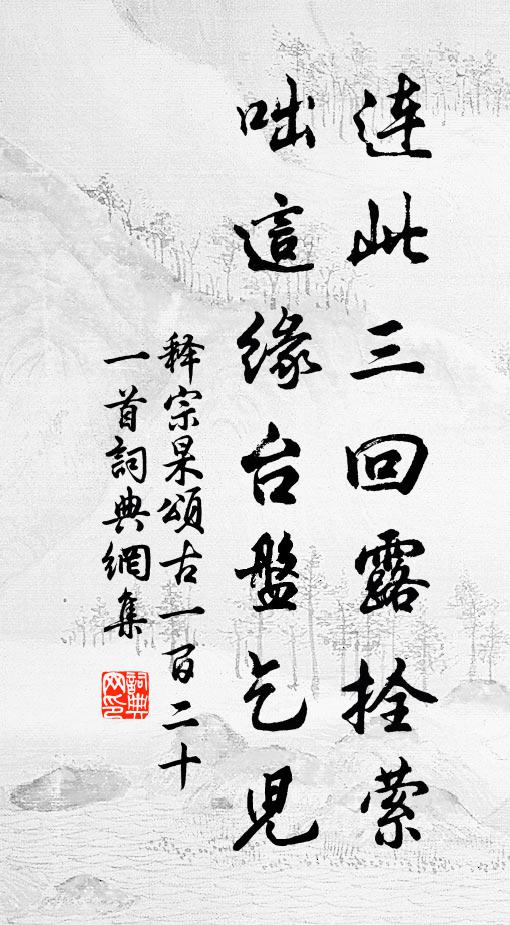 連此三回露拴縈
咄這緣台盤乞兒
释宗杲頌古一百二十
一首詞典網集
詞典网印